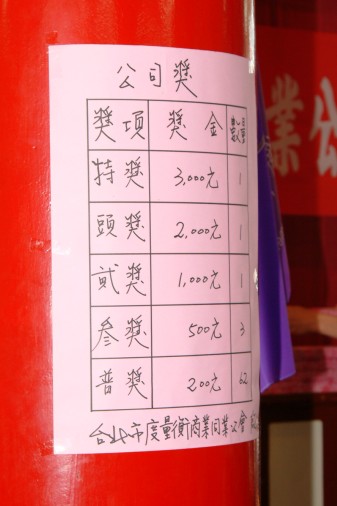 公司獎
獎項 獎金 數量
特獎 3,000元 1
頭獎 2,000元 1
貳獎 1,000元 1
叁獎 500元 3
普獎 200元 62
台北市度量衡商業同業公會
業